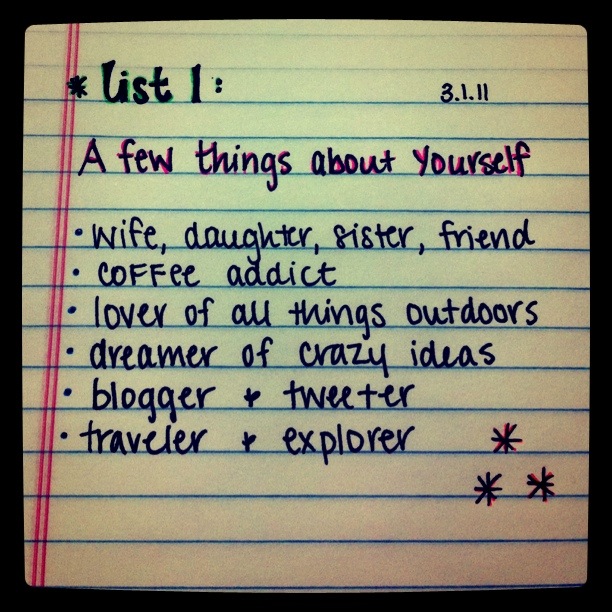 * List 1: 3.1.11
A few things about yourself
• wife, daughter, sister, friend
• coffee addict
• lover of all things outdoors
• dreamer of crazy ideas
• blogger + tweeter
• traveler + explorer *
* *